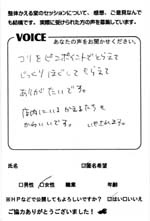 整体かえる堂のセッションについて、ご感想、ご意見なんで
も結構です。実際に受けられた方の声を募集しています。
VOICE
あなたの声をお聞かせください。
コリをピンポイントでとらえて
じっくりほぐしてもらえて
ありがたいです。
院内にいる かえるたちも
かわいいです。いやされます。
氏名
☑匿名希望
□男性 ☑女性 職業 年齢
※HPなどで公開してもよろしいですか？ □はい □いいえ
ご協力ありがとうございました！